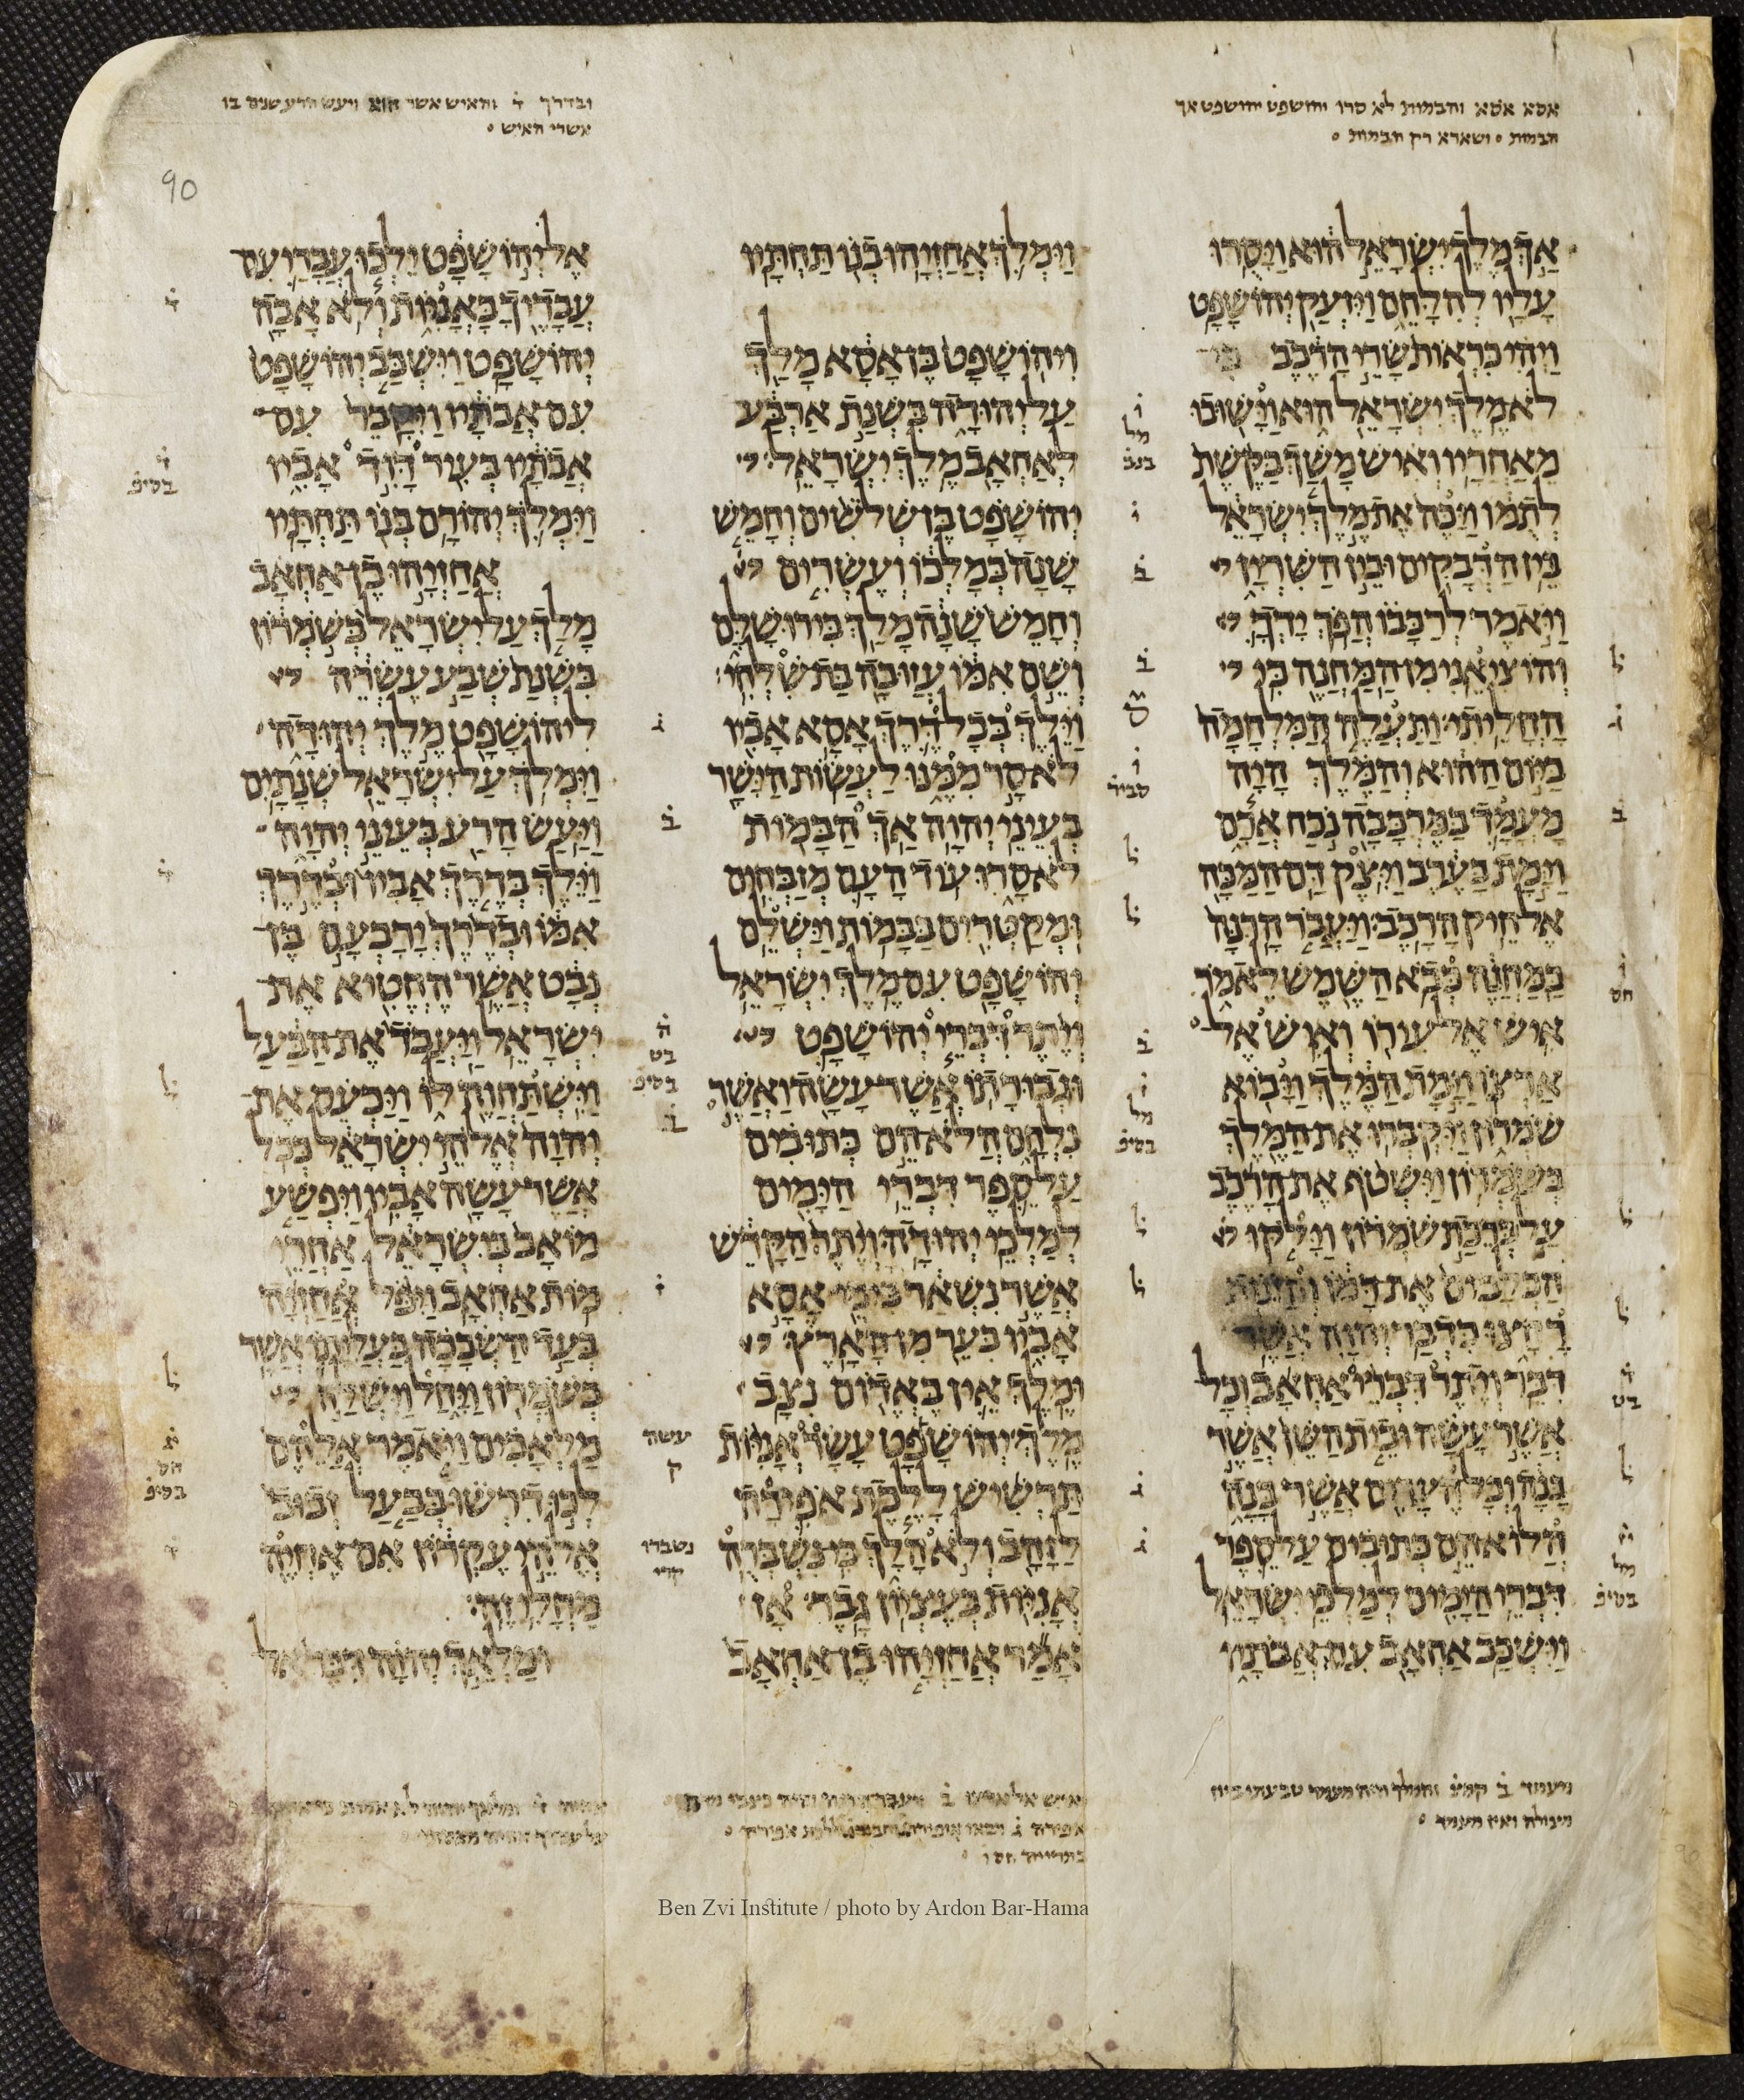 אסא אסא והבמות לא סרו יהושפט יהושפט אך
הבמות ושארא רק הבמות
ובדרך ד והאיש אשר הוא ויעש הרע שנים בו
אשרי האיש
90
אך מלך ישראל הוא ויסרו
עליו להלחם ויזעק יהושפט
ויהי כראות שרי הרכב כי
לא מלך ישראל הוא וישובו
מאחריו ואיש משך בקשת
לתמו ויכה את מלך ישראל
בין הדבקים ובין השרין
ויאמר לרכבו הפך ידך
והוציאני מן המחנה כי
החליתי ותעלה המלחמה
ביום ההוא והמלך היה
מעמד במרכבה נכח ארם
וימת בערב ויצק דם המכה
אל חיק הרכב ויעבר הרנה
במחנה כבא השמש לאמר
איש אל עירו ואיש אל
ארצו וימת המלך ויבוא
שמרון ויקברו את המלך
בשמרון וישטף את הרכב
על ברכת שמרון וילקו
הכלבים את דמו והזנות
רחצו כדבר יהוה אשר
דבר ויתר דברי אחאב וכל
אשר עשה ובית השן אשר
בנה וכל הערים אשר בנה
הלוא הם כתובים על ספר
דברי הימים למלכי ישראל
וישכב אחאב עם אבתיו
וימלך אחזיהו בנו תחתיו
ויהושפט בן אסא מלך
על יהודה בשנת ארבע
לאחאב מלך ישראל
יהושפט בן שלשים וחמש
שנה במלכו ועשרים
וחמש שנה מלך בירושלם
ושם אמו עזובה בת שלחי
וילך בכל דרך אסא אביו
לא סר ממנו לעשות הישר
בעיני יהוה אך הבמות
לא סרו עוד העם מזבחים
ומקטרים בבמות וישלם
יהושפט עם מלך ישראל
ויתר דברי יהושפט
וגבורתו אשר עשה ואשר
נלחם הלא הם כתובים
על ספר דברי הימים
למלכי יהודה ויתר הקדש
אשר נשאר בימי אסא
אביו בער מן הארץ
ומלך אין באדום נצב
מלך יהושפט עשר אניות
תרשיש ללכת אפירה
לזהב ולא הלך כי נשברה
אניות בעציון גבר אז
אמר אחזיהו בן אחאב
אל יהושפט ילכו עבדי עם
עבדיך באניות ולא אבה
יהושפט וישכב יהושפט
עם אבתיו ויקבר עם
אבתיו בעיר דוד אביו
וימלך יהורם בנו תחתיו
אחזיהו בן אחאב
מלך על ישראל בשמרון
בשנת שבע עשרה
ליהושפט מלך יהודה
וימלך על ישראל שנתים
ויעש הרע בעיני יהוה
וילך בדרך אביו ובדרך
אמו ובדרך ירבעם בן
נבט אשר החטיא את
ישראל ויעבד את הבעל
וישתחוה לו ויכעס את
יהוה אלהי ישראל ככל
אשר עשה אביו ויפשע
מואב בישראל אחרי
מות אחאב ויפל אחזיה
בעד השבכה בעליתו אשר
בשמרון ויחל וישלח
מלאכים ויאמר אלהם
לכו דרשו בבעל זבוב
אלהי עקרון אם אחיה
מחלי זה
ומלאך יהוה דבר אל
Ben Zvi Institute / photo by Ardon Bar-Hama